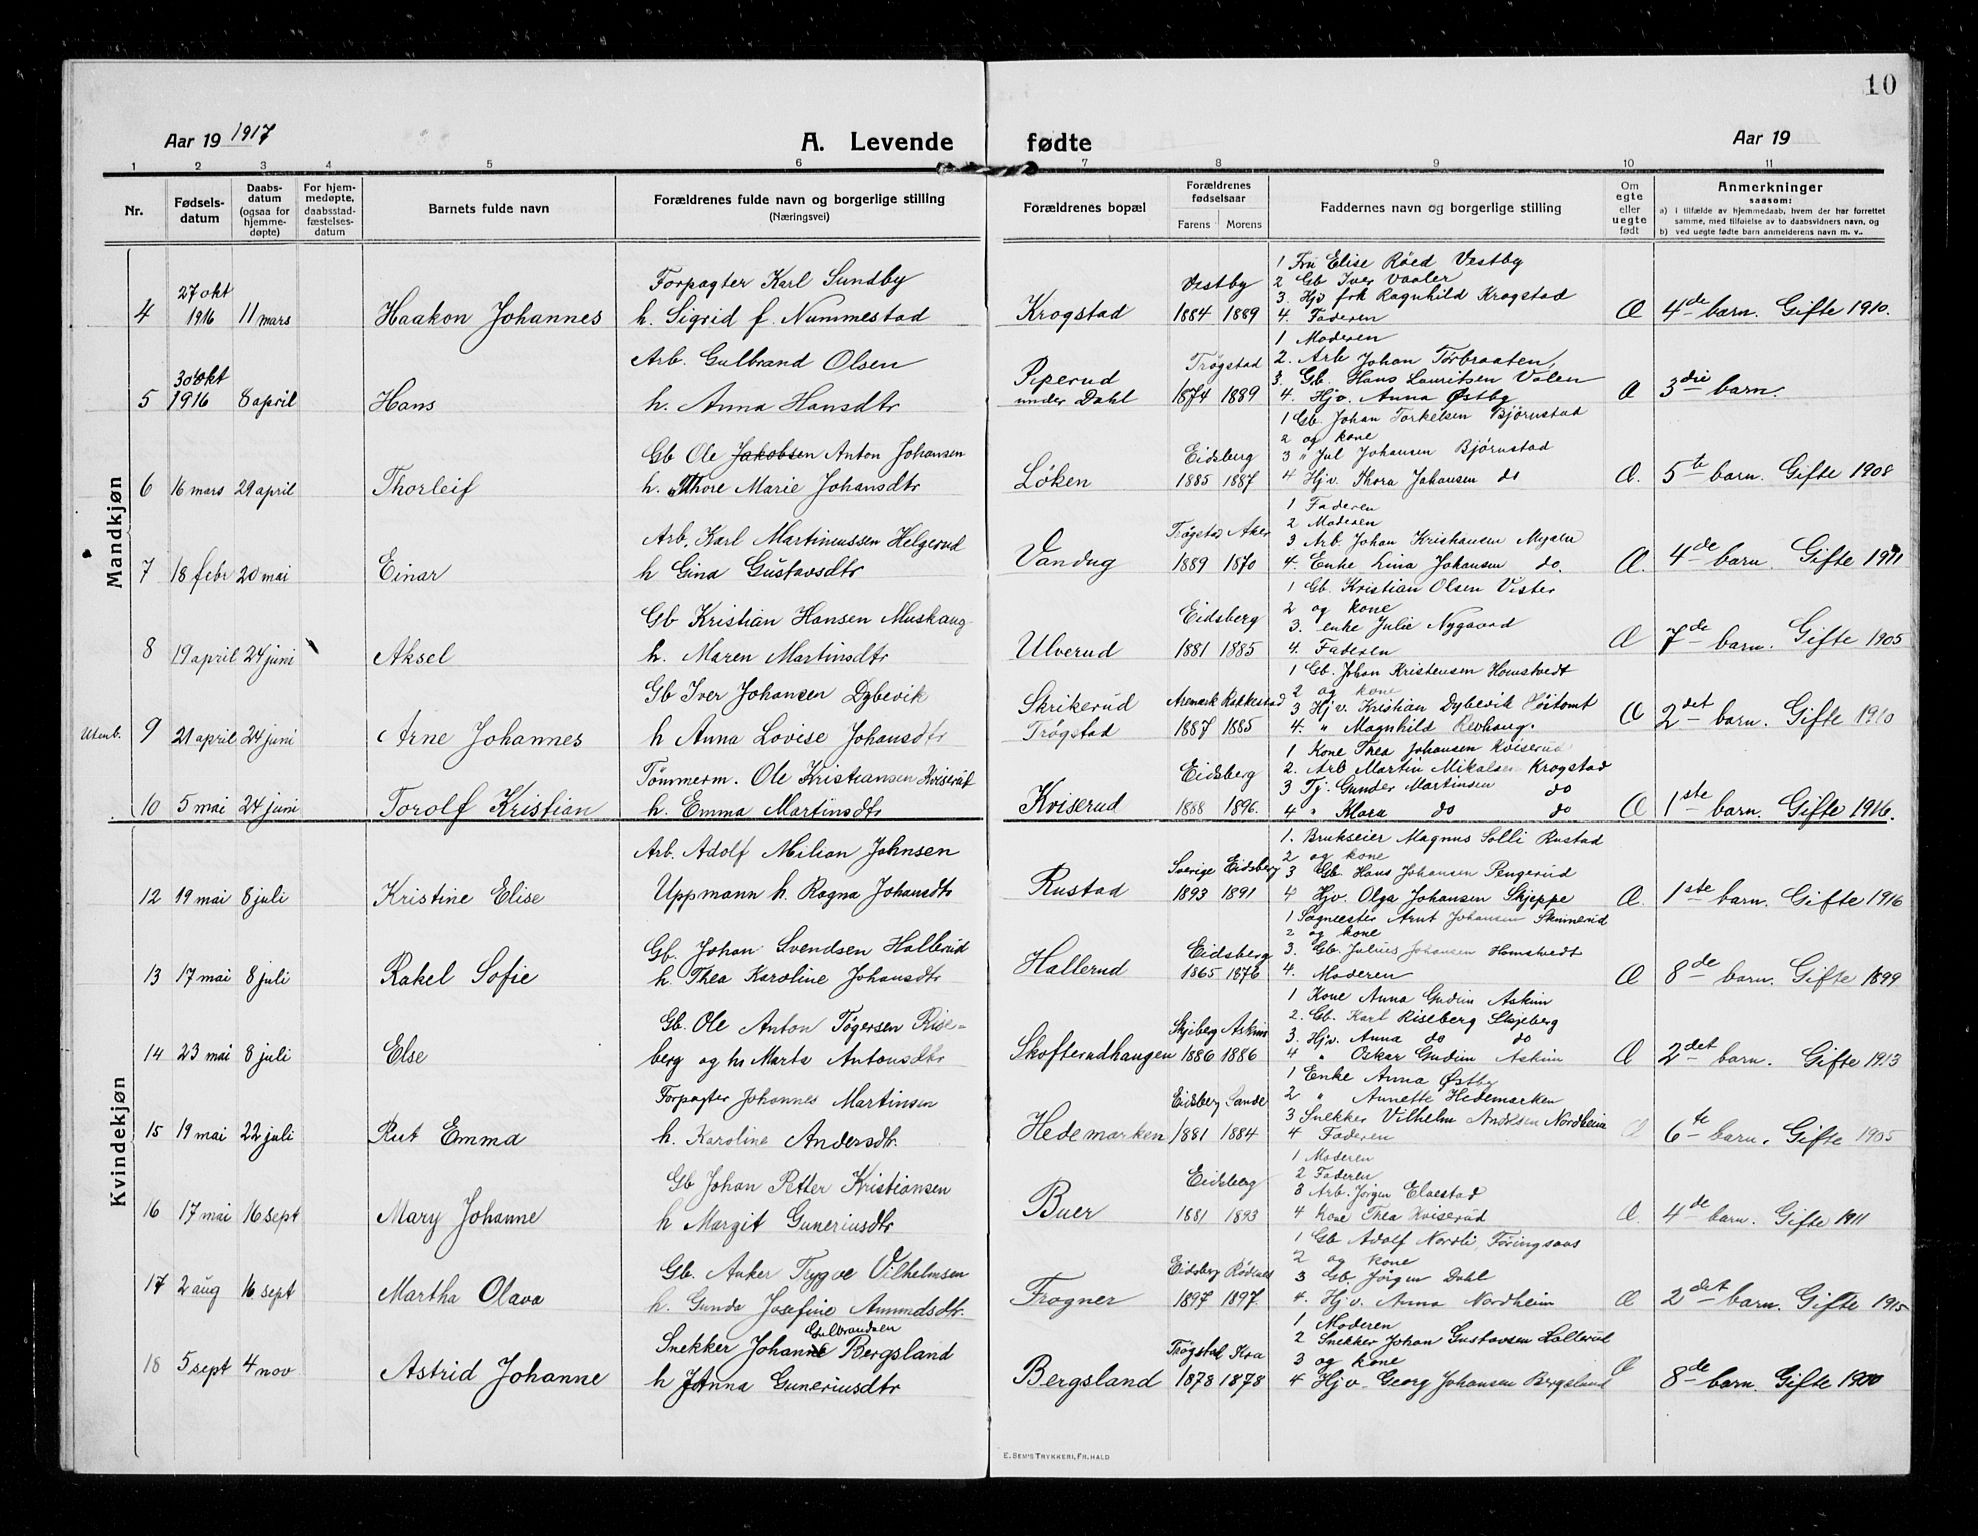 10
Aar 19 1917 A. Levende fødte Aar 19
1 2 3 4 5 6 7 8 9 10 11
Nr.
Fødsels-
datum
Daabs-
datum
(ogsaa for
hjemme-
døpte)
For hjem-
medøpte,
daabsstad-
fæstelses-
datum
Barnets fulde navn
Forældrenes fulde navn og borgerlige stilling
(Næringsvei)
Forældrenes bopæl
Forældrenes
fødselsaar
Farens Morens
Faddernes navn og borgerlige stilling
Om
egte
eller
uegte
født
Anmerkninger
saasom:
a) I tilfælde av hjemmedaab, hvem der har forrettet
samme, med tilføielse av to daabsvidners navn, og
b) ved uegte fødte barn anmelderens navn m. v..
Mandkjøn
4 27 okt 1916 11 mars Haakon Johannes
Forpagter Karl Sundby
h. Sigrid f. Nummestad
Krogstad
Vestby
1884 1889
1 Fru Elise Röed Vestby
2 Gb Iver Vaaler
3. Hjv frk Ragnhild Krogstad
4. Faderen
Æ 4de barn. Gifte 1910.
5 30 okt 1916 8 april Hans
Arb. Gulbrand Olsen
h. Anna Hansdtr
Piperud
under Dahl
Trøgstad
1874 1889
1 Moderen
2. Arb Johan Torbraaten,
3. Gb. Hans Lauritsen Valen
4. Hjv. Anna Østby
Æ 3die barn.
6 16 mars 29 april Thorleif
Gb Ole Jakobsen Anton Johansen
h. Thore Marie Johansdtr
Løken
Eidsberg
1885 1887
1 Gb. Johan Torkelsen Bjørnstad
2 og kone
3 " Jul Johansen Bjørnstad
4 Hjv. Thora Johansen do
Æ. 5te barn. Gifte 1908
7 18 febr 20 mai Einar
Arb. Karl Martinussen Helgerud
h Gina Gustavsdtr
Vandug
Trøgstad Aker
1889 1870
1 Faderen
2 Moderen
3 Arb. Johan Kristiansen
4. Enke Lina Johansen do.
Æ. 4de barn. Gifte 1911
8 19 april 24 juni Aksel
Gb Kristian Hansen Muskaug
h. Maren Martinsdtr
Ulverud
Eidsberg
1881 1885
1 Gb. Kristian Olsen Vister
2 og kone
3. enke Julie Nygaard
4. Faderen
Æ 7de barn. Gifte 1905
Utenb. 9 21 april 24 juni Arne Johannes
Gb Iver Johansen Dybevik
h Anna Lovise Johansdtr
Skrikerud
Trøgstad
Aremark Rakkestad
1887 1885
1 Gb. Johan Kristensen Homstvedt
2 og kone
3 Hjv. Kristian Dybevik Høitomt
4. " Magnhild Revhaug.
Æ 2det barn. Gifte 1910
10 5 mai 24 juni Torolf Kristian
Tömmerm. Ole Kristiansen Kviserud
h. Emma Martinsdtr
Kviserud
Eidsberg
1888 1896.
1 Kone Thea Johansen Kviserud
2. Arb Martin Mikalsen Krogstad
3 Tj. Gunder Martinsen do
4 " Mara do do
Æ 1ste barn. Gifte 1916.
Kvindekjøn
12 19 mai 8 juli Kristine Elise
Arb. Adolf Milian Johnsen
Uppmann h. Ragna Johansdtr
Rustad
Sverige Eidsberg
1893 1891
1. Brukseier Magnus Solli Rustad
2 og kone
3 Gb. Hans Johansen Pengerud
4 Hjv. Olga Johansen Skjeppe
Æ. 1ste barn. Gifte 1916
13 17 mai 8 juli Rakel Sofie
Gb. Johan Svendsen Hallerud
h. Thea Karoline Johansdtr
Hallerud
Eidsberg
1865 1876
1 Sogmester Arnt Johansen Skinnerud
2 og kone
3. Gb. Julius Johansen Homstvedt
4. Moderen
Æ 8de barn. Gifte 1899
14 23 mai 8 juli Else
Gb. Ole Anton Tögersen Rise-
berg og hu Marta Antonsdtr
Skofterudhaugen
Skjeberg Askim
1886 1886
1 Kone Anna Gudim Askim
2. Gb. Karl Riseberg Skjeberg
3. Hjv. Anna do do
4 " Oskar Gudim Askim
Æ 2det barn. Gifte 1913
15 19 mai 22 juli Rut Emma
Forpagter Johannes Martinsen
h. Karoline Andersdtr.
Hedemarken
Eidsberg Sande
1881 1884
1 Enke Anna Østby
2 " Annette Hedemarken
3 Snekker Vilhelm Andersen Nordheim
4 Faderen
Æ 6te barn. Gifte 1905
16 17 mai 16 sept Mary Johanne
Gb Johan Petter Kristiansen
h Margit Guneriusdtr
Buer
Eidsberg
1881 1893
1 Moderen
2 Faderen
3 Arb. Jörgen Elvestad
4 Kone Thea Kviserud
Æ. 4de barn. Gifte 1911
17 2 aug 16 sept Martha Olava
Gb. Anker Trygve Vilhelmsen
h. Gunda Josefine Amundsdtr.
Frogner
Eidsberg Rödnes
1897 1897.
1 Gb Adolf Nordli, Töringsaas
2 og kone
3 Gb. Jörgen Dahl
4. Hjv. Anna Nordheim
Æ 2det barn. Gifte 1915
18 5 sept 4 nov Astrid Johanne
Gulbrandsen
Snekker Johan Bergsland
h Anna Guneriusdtr
Bergsland
Trøgstad Kra
1878 1878
1 Moderen
2 Snekker Johan Gustavsen Lallerud
3 og kone
4 Hjv. Georg Johansen Bergsland
Æ 8de barn. Gifte 1900
E. SEM'S TRYKKERI, FR.HALD